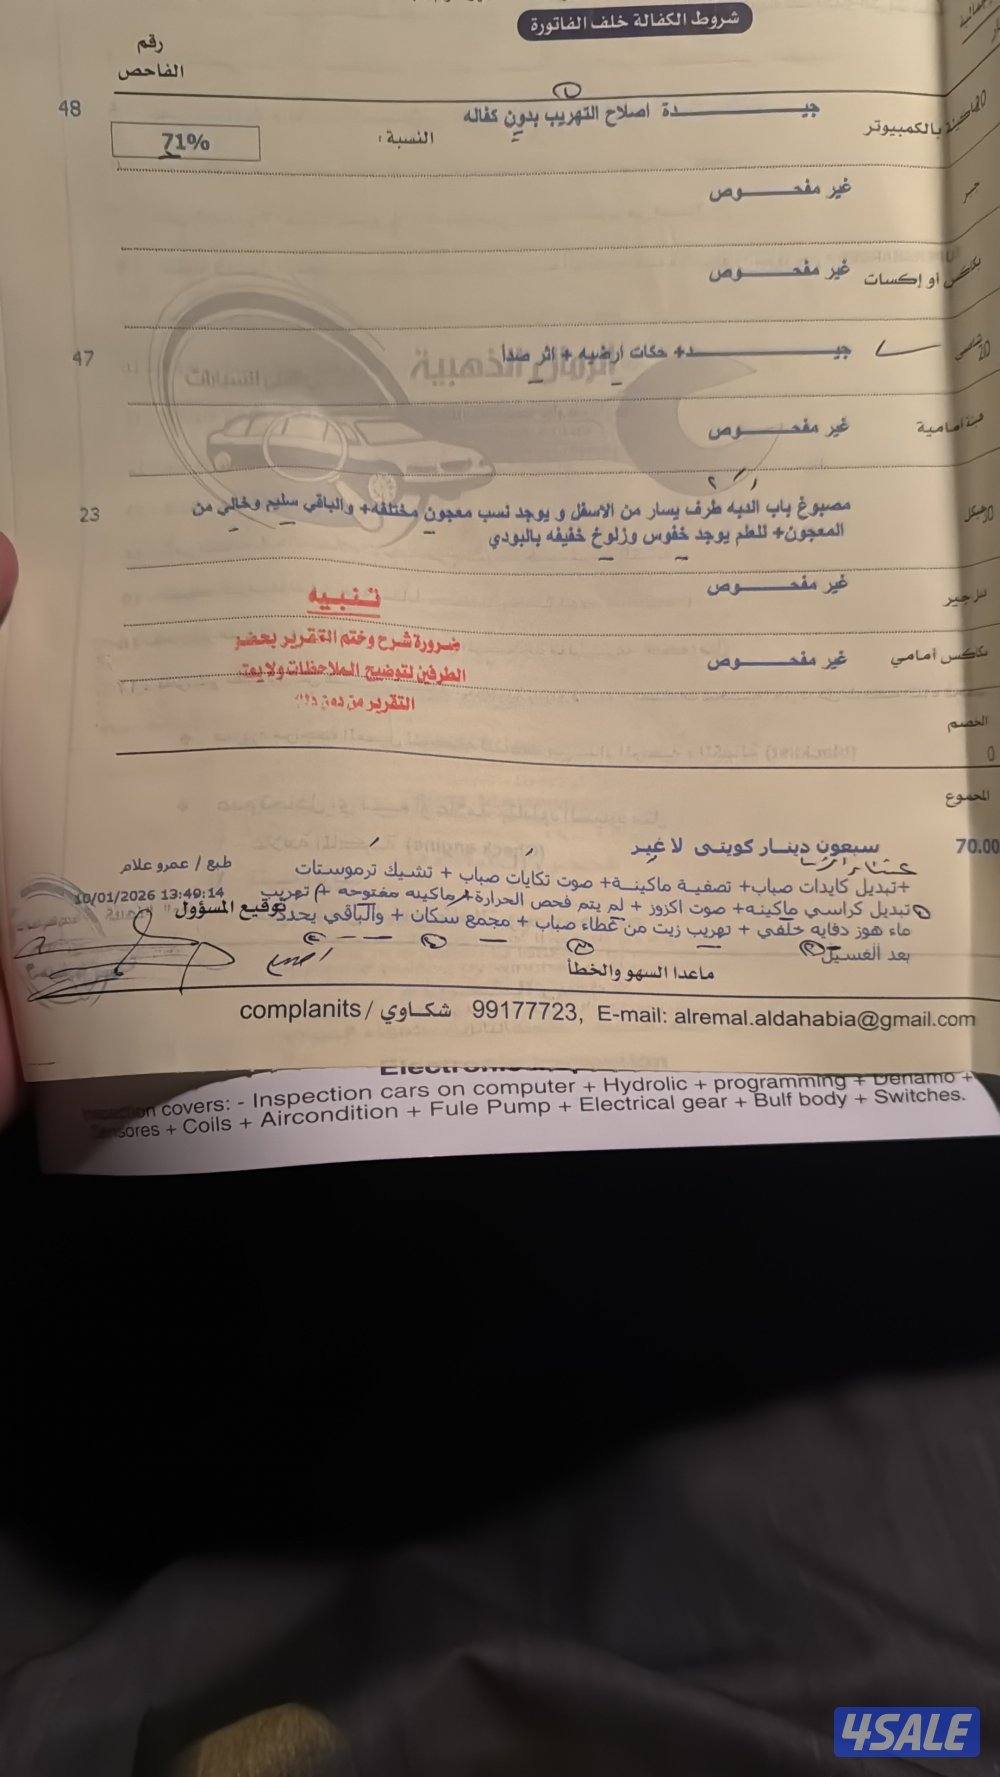 شروط الكفالة خلف الفاتورة
رقم
الفاحص
بالكمبيوتر
جيـــــدة اصلاح التهريب بدون كفاله
48
النسبة :
71%
غير مفحـــــوص
بكاكس أو إكسات
غير مفحـــــوص
شاصي
20
جيـــــد+ حكات ارضيه + اثر صدأ
47
الرمال الذهبية
هيئة أمامية
غير مفحـــــوص
هيكل
مصبوغ باب الدبه طرف يسار من الاسفل و يوجد نسب معجون مختلفه+ والباقي سليم وخالي من
23
المعجون+ للعلم يوجد خفوس وزلوخ خفيفه بالبودي
غير مفحـــــوص
تنبيه
ضرورة شرح وختم التقرير بحضور
بكاكس أمامي
غير مفحـــــوص
الطرفين لتوضيح الملاحظات ولا يعتد
التقرير من دون ذلك
الخصم
0
المجموع
70.00
سبعون دينار كويتى لا غير
طبع / عمرو علام
+تبديل كايدات صباب+ تصفية ماكينة+ صوت تكايات صباب + تشيك ترموستات
10/01/2026 13:49:14
تبديل كراسي ماكينه+ صوت اكزوز + لم يتم فحص الحرارة+ماكينه مفتوحه + تهريب
توقيع المسؤول
ماء هوز دفايه خلفي + تهريب زيت من غطاء صباب + مجمع سكان + والباقي يحدد
بعد الغسيل
ماعدا السهو والخطأ
complanits / شكاوي 99177723, E-mail: alremal.aldahabia@gmail.com
covers: - Inspection cars on computer + Hydrolic + programming + Denamo +
+ Coils + Aircondition + Fule Pump + Electrical gear + Bulf body + Switches.
4SALE